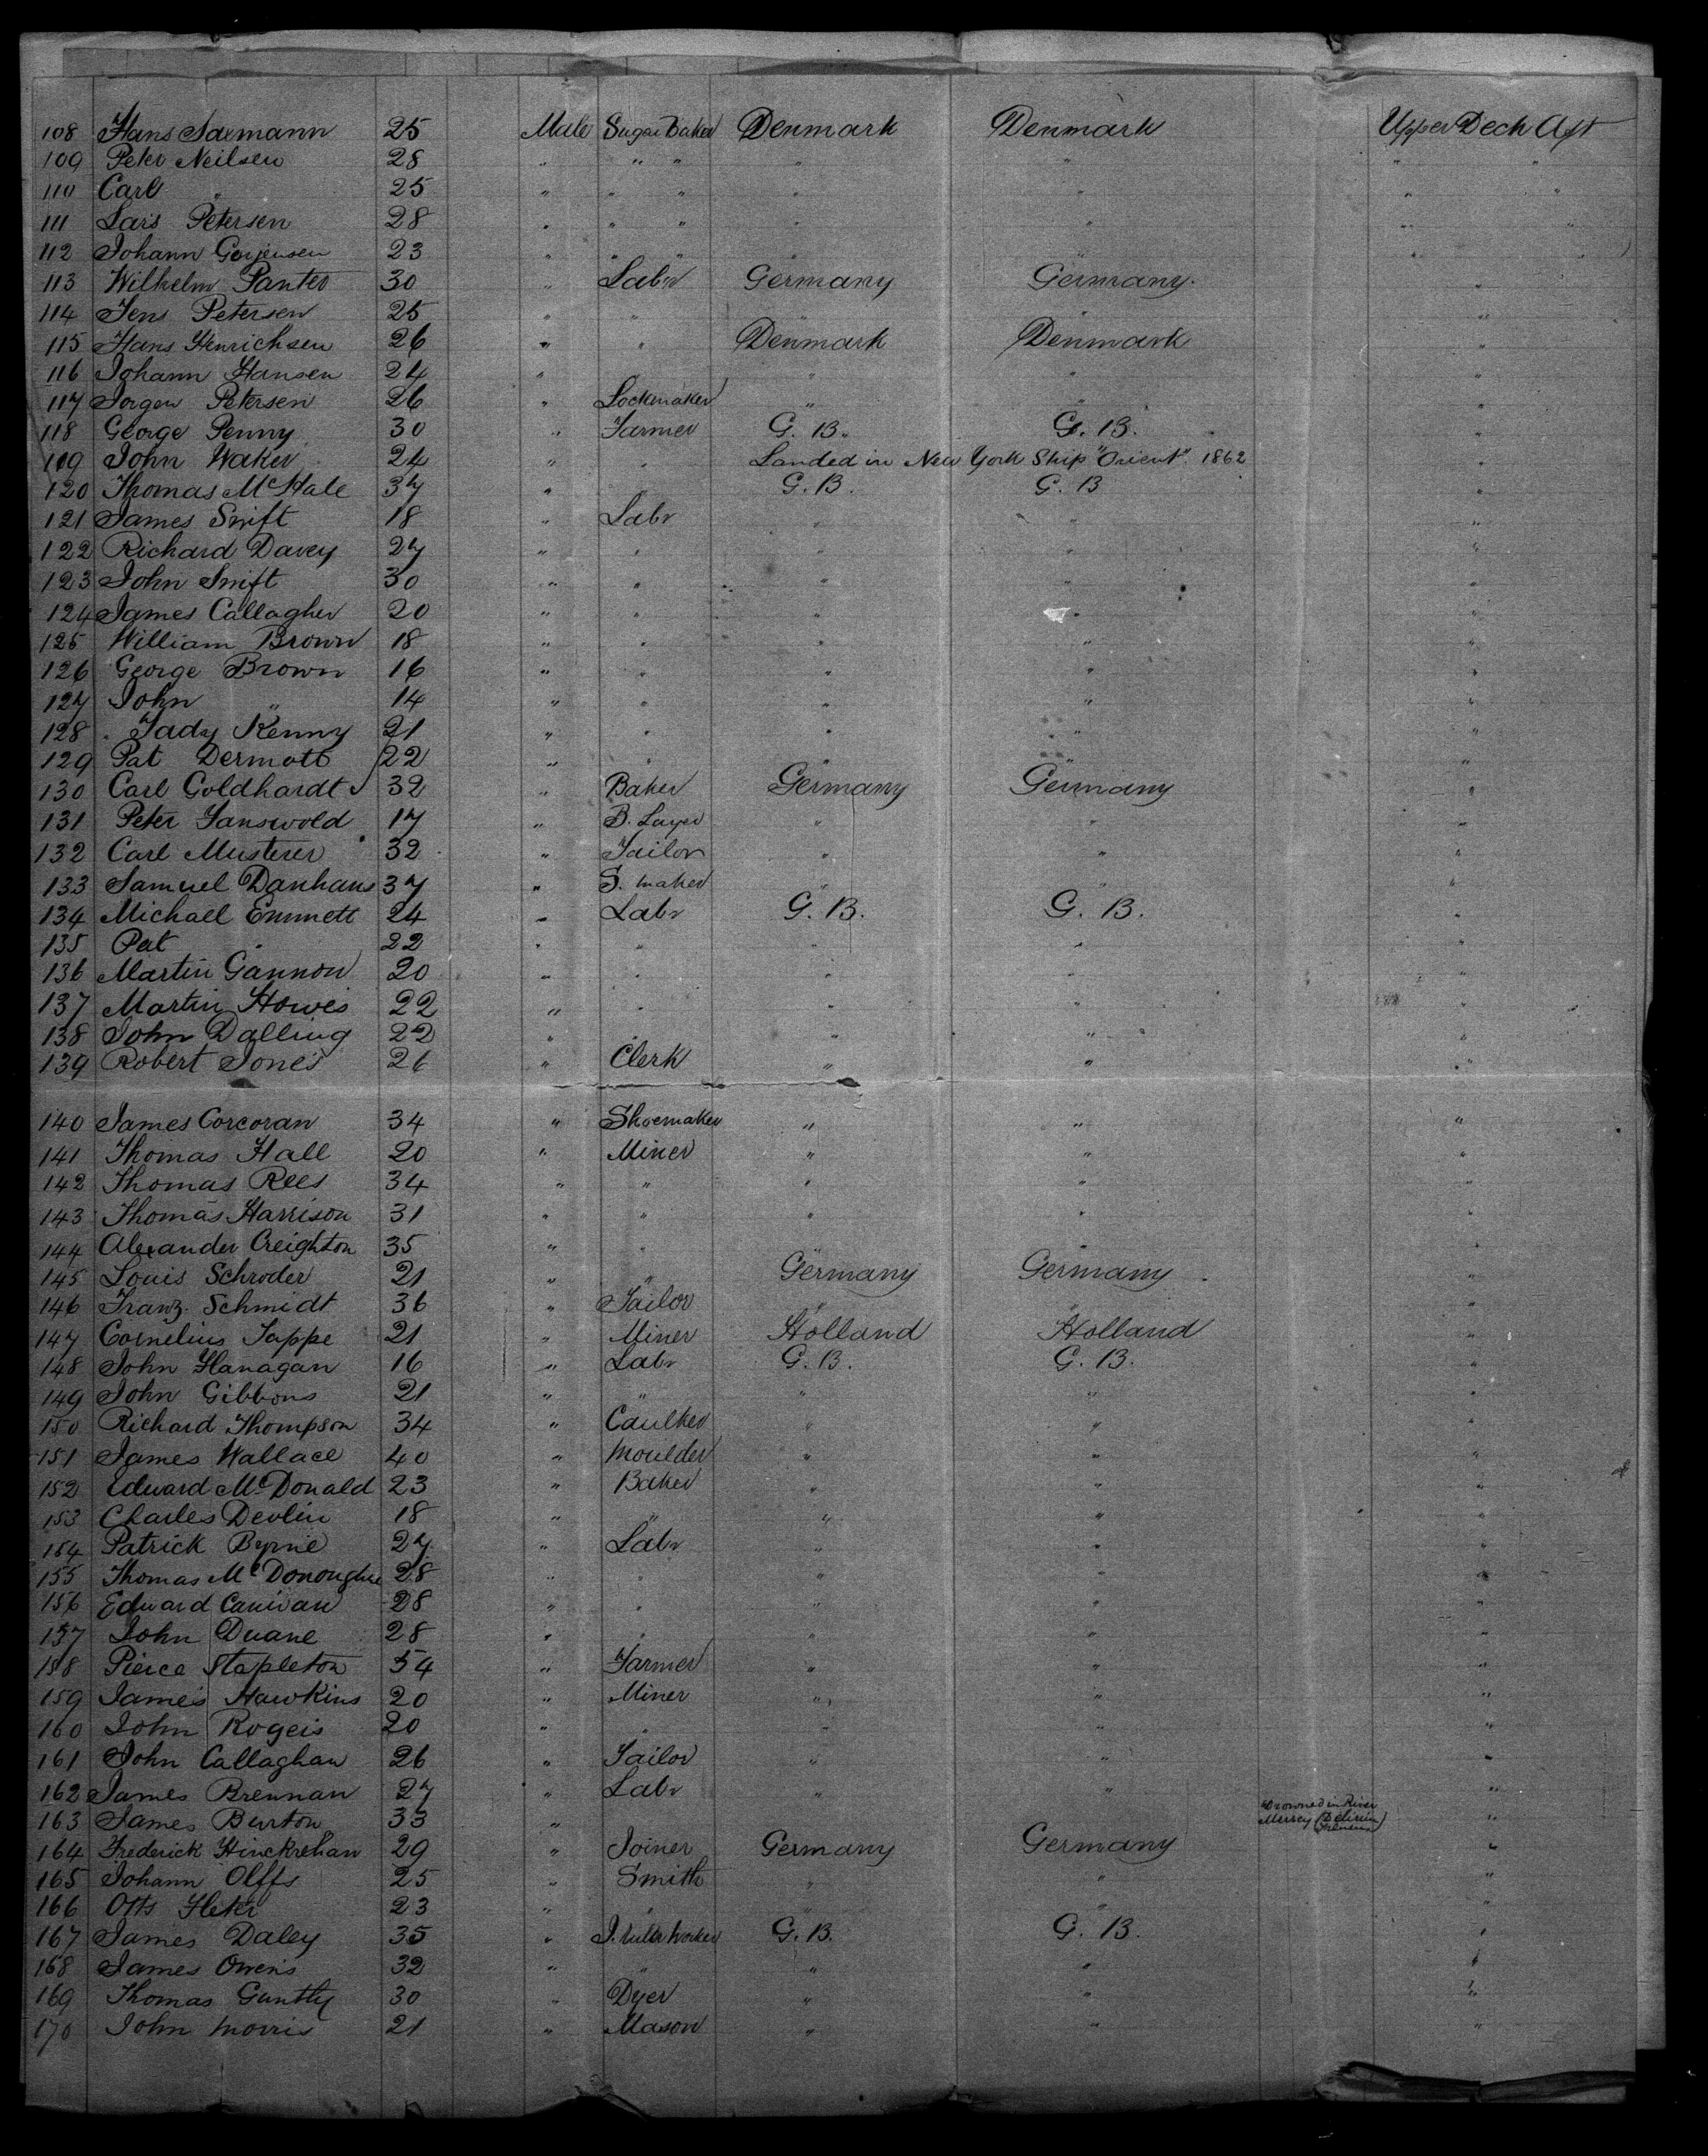 108 Hans Saxmann 25 Male Sugar Baker Denmark Denmark Upper Deck Aft
109 Peter Neilsen 28 " " " " " " "
110 Carl " 25 " " " " " " "
111 Lars Petersen 28 " " " " " " "
112 Johann Gorjensen 23 " " " " " " "
113 Wilhelm Panter 30 " Labr Germany Germany. "
114 Jens Petersen 25 " " " " "
115 Hans Henrichsen 26 " " Denmark Denmark "
116 Johann Hansen 24 " " " " "
117 Jorgen Petersen 26 " Lockmaker " " "
118 George Penny 30 " Farmer G. B. G. B. "
119 John Waker 24 " " Landed in New York Ship "Orient" 1862
120 Thomas McHale 37 " " G. B. G. B "
121 James Swift 18 " Labr " " "
122 Richard Davey 27 " " " " "
123 John Swift 30 " " " " "
124 James Callagher 20 " " " " "
125 William Brown 18 " " " " "
126 George Brown 16 " " " " "
127 John " 14 " " " " "
128 Tady Kenny 21 " " " " "
129 Pat Dermott 22 " " " " "
130 Carl Goldhardt 32 " Baker Germany Germany "
131 Peter Janswold 17 " B. Layer " " "
132 Carl Musterer 32 " Tailor " " "
133 Samuel Danhaus 37 " S. maker " " "
134 Michael Emmett 24 " Labr G. B. G. B. "
135 Pat " 22 " " " " "
136 Martin Gannon 20 " " " " "
137 Martin Howes 22 " " " " "
138 John Dalling 22 " " " " "
139 Robert Jones 26 " Clerk " " "
140 James Corcoran 34 " Shoemaker " " "
141 Thomas Hall 20 " Miner " " "
142 Thomas Rees 34 " " " " "
143 Thomas Harrison 31 " " " " "
144 Alexander Creighton 35 " " " " "
145 Louis Schroder 21 " " Germany Germany "
146 Franz Schmidt 36 " Tailor " " "
147 Cornelius Tappe 21 " Miner Holland Holland "
148 John Flanagan 16 " Labr G. B. G. B. "
149 John Gibbons 21 " " " " "
150 Richard Thompson 34 " Caulker " " "
151 James Wallace 40 " Moulder " " "
152 Edward McDonald 23 " Baker " " "
153 Charles Devlin 18 " " " " "
154 Patrick Byrne 27 " Labr " " "
155 Thomas McDonoughue 28 " " " " "
156 Edward Canivan 28 " " " " "
157 John Duane 28 " " " " "
158 Pierce Stapleton 54 " Farmer " " "
159 James Hawkins 20 " Miner " " "
160 John Rogers 20 " " " " "
161 John Callaghan 26 " Tailor " " "
162 James Brennan 27 " Labr " " "
163 James Burton 33 " Drowned in River Mersey (Delirium Tremens) "
164 Frederick Hinckrehan 29 " Joiner Germany Germany "
165 Johann Olffs 25 " Smith " " "
166 Otts 23 " " " " "
167 James Daley 35 " G. B. G. B. "
168 James Owens 32 " " " " "
169 Thomas Guntly 30 " Dyer " " "
170 John Morris 21 " Mason " " "